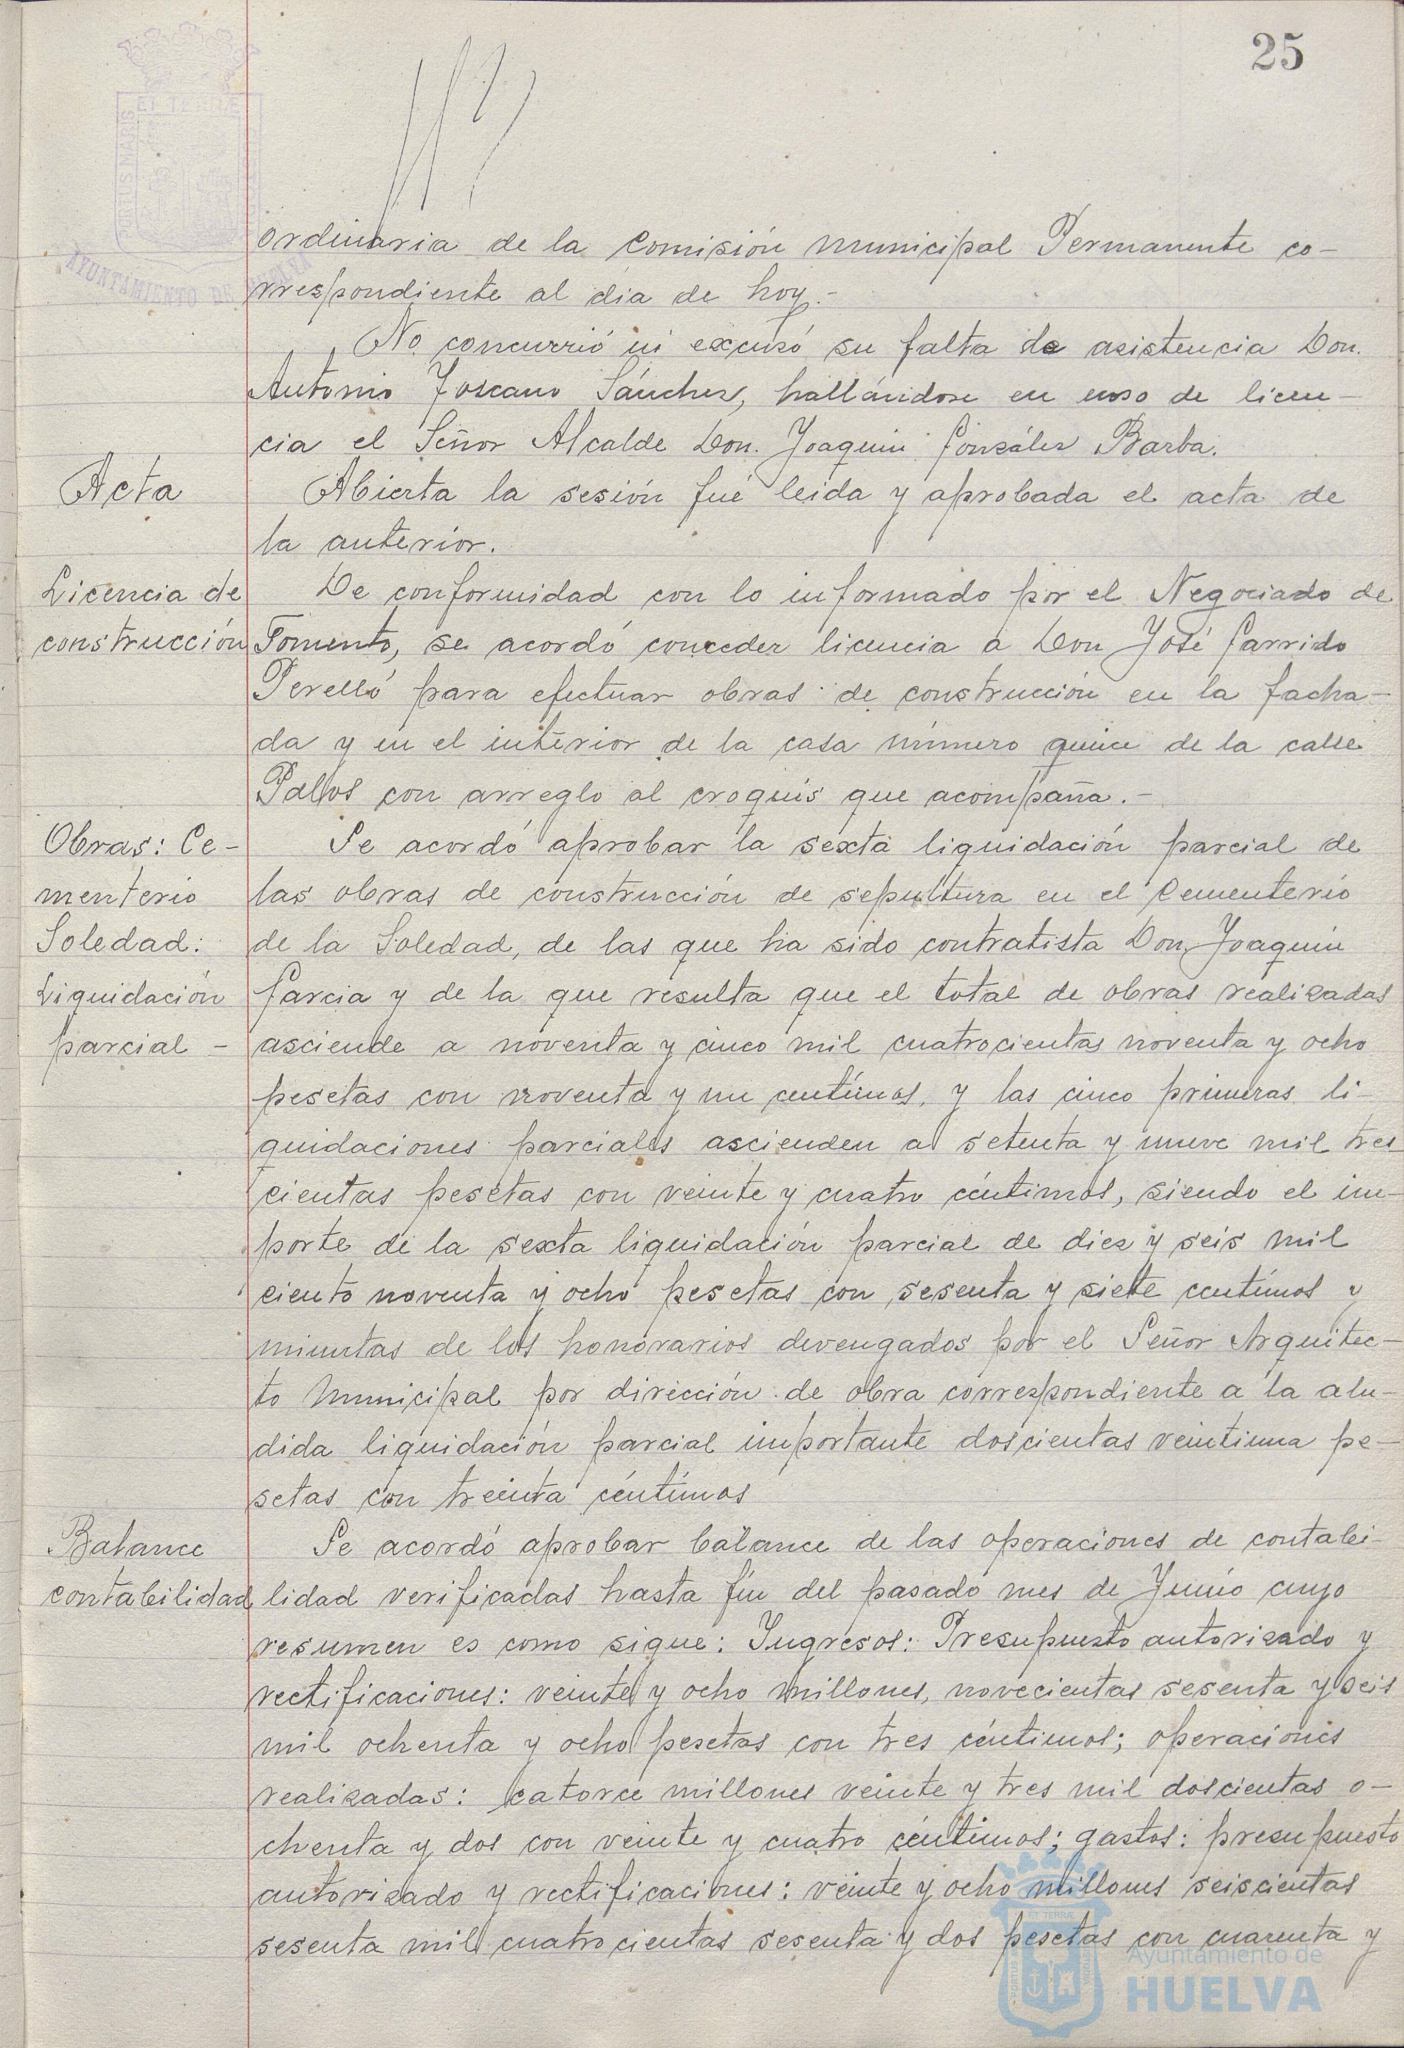 25
PORTUS MARIS
ET TERRÆ
AYUNTAMIENTO DE HUELVA
ordinaria de la Comisión Municipal Permanente co-
rrespondiente al día de hoy.-
No concurrió ni excusó su falta de asistencia Don
Antonio Toscano Sánchez, hallándose en uso de licen-
cia el Señor Alcalde Don Joaquín González Barba.
Acta
Abierta la sesión fué leida y aprobada el acta de
la anterior.
Licencia de
construcción
De conformidad con lo informado por el Negociado de
Fomento, se acordó conceder licencia a Don José Garrido
Perelló para efectuar obras de construcción en la facha-
da y en el interior de la casa número quince de la calle
Palos con arreglo al croquis que acompaña.-
Obras: Ce-
menterio
Soledad:
Liquidación
parcial -
Se acordó aprobar la sexta liquidación parcial de
las obras de construcción de sepultura en el Cementerio
de la Soledad, de las que ha sido contratista Don Joaquín
García y de la que resulta que el total de obras realizadas
asciende a noventa y cinco mil cuatrocientas noventa y ocho
pesetas con noventa y un centimos, y las cinco primeras li-
quidaciones parciales ascienden a setenta y nueve mil tres
cientas pesetas con veinte y cuatro céntimos, siendo el im-
porte de la sexta liquidación parcial de diez y seis mil
ciento noventa y ocho pesetas con sesenta y siete centimos y
minutas de los honorarios devengados por el Señor Arquitec-
to Municipal por dirección de obra correspondiente a la alu-
dida liquidación parcial importante doscientas veintiuna pe-
setas con treinta céntimos
Balance
contabilidad
Se acordó aprobar balance de las operaciones de contabi-
lidad verificadas hasta fin del pasado mes de Junio cuyo
resumen es como sigue: Ingresos: Presupuesto autorizado y
rectificaciones: veinte y ocho millones, novecientas sesenta y seis
mil ochenta y ocho pesetas con tres céntimos; operaciones
realizadas: catorce millones veinte y tres mil doscientas o-
chenta y dos con veinte y cuatro céntimos; gastos: presupuesto
autorizado y rectificaciones: veinte y ocho millones seiscientas
sesenta mil cuatrocientas sesenta y dos pesetas con cuarenta y
Ayuntamiento de
HUELVA